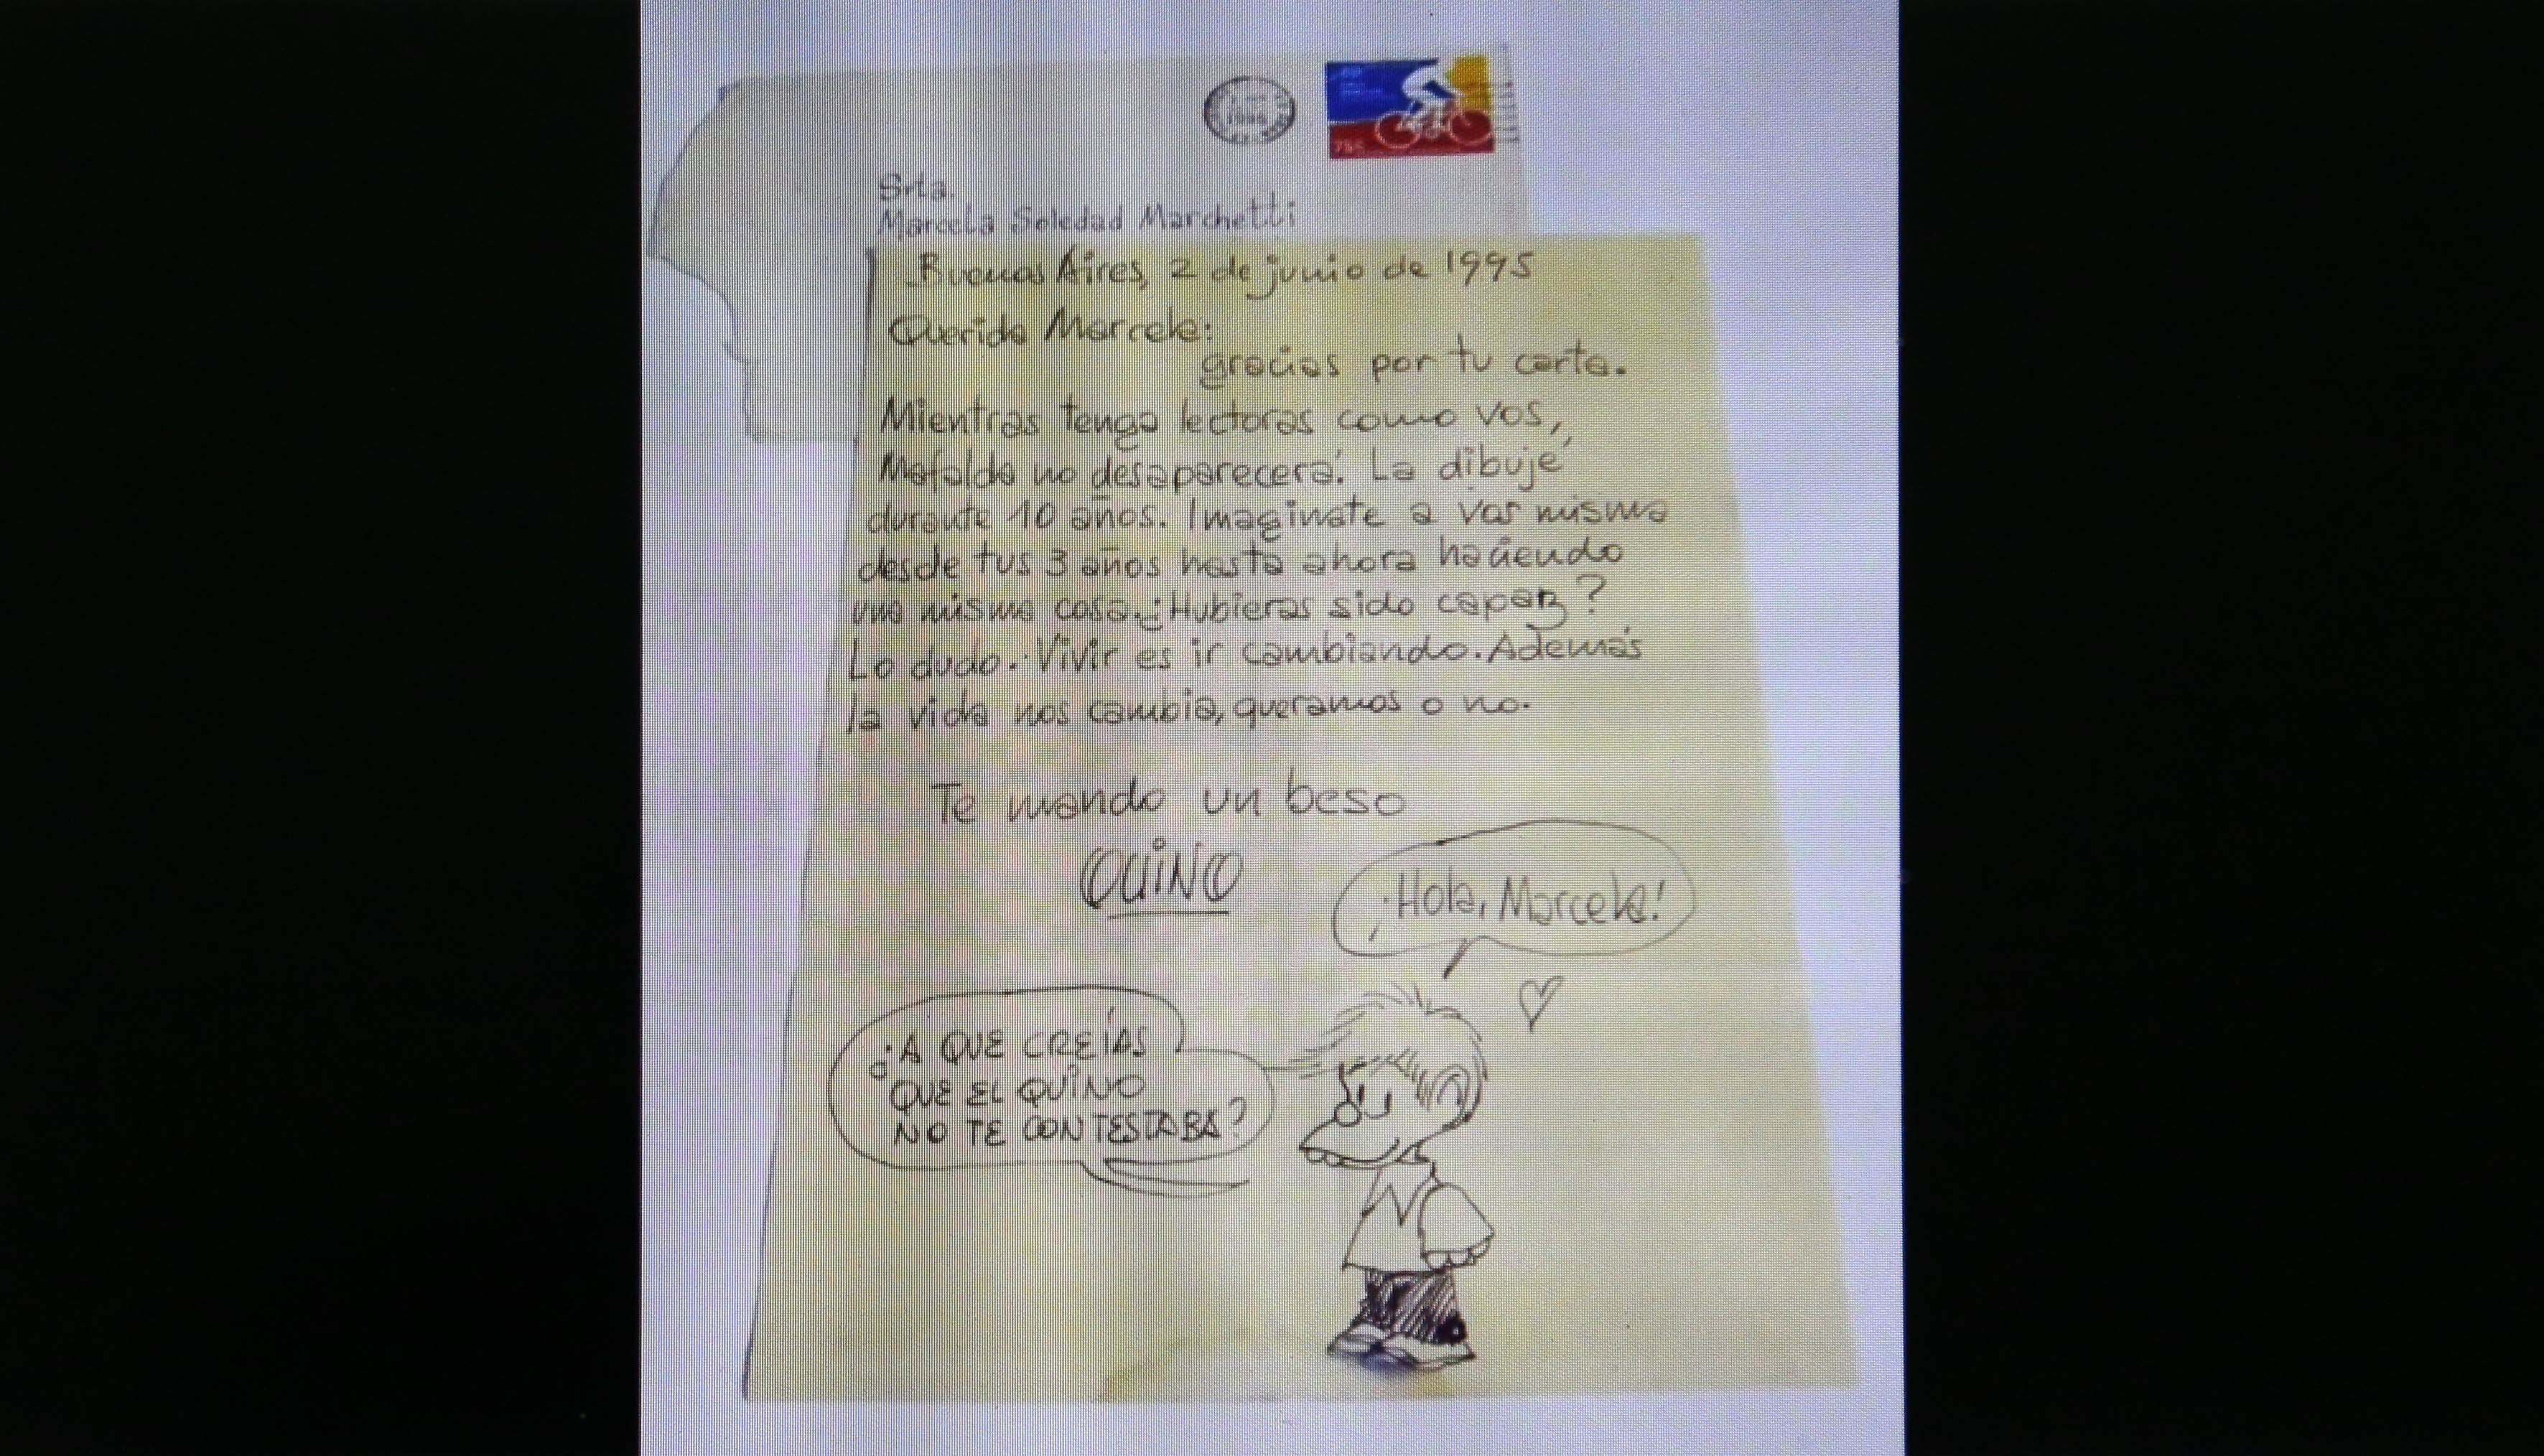 75c
Srta.
Marcela Soledad Marchetti
Buenos Aires, 2 de junio de 1995
Querida Marcela:
gracias por tu carta.
Mientras tenga lectoras como vos,
Mafalda no desaparecerá. La dibujé
durante 10 años. Imaginate a vos misma
desde tus 3 años hasta ahora haciendo
una misma cosa. ¿Hubieras sido capaz?
Lo dudo. Vivir es ir cambiando. Además
la vida nos cambia, queramos o no.
Te mando un beso
QUINO
¡Hola, Marcela!
¿A QUE CREÍAS
QUE EL QUINO
NO TE CONTESTABA?